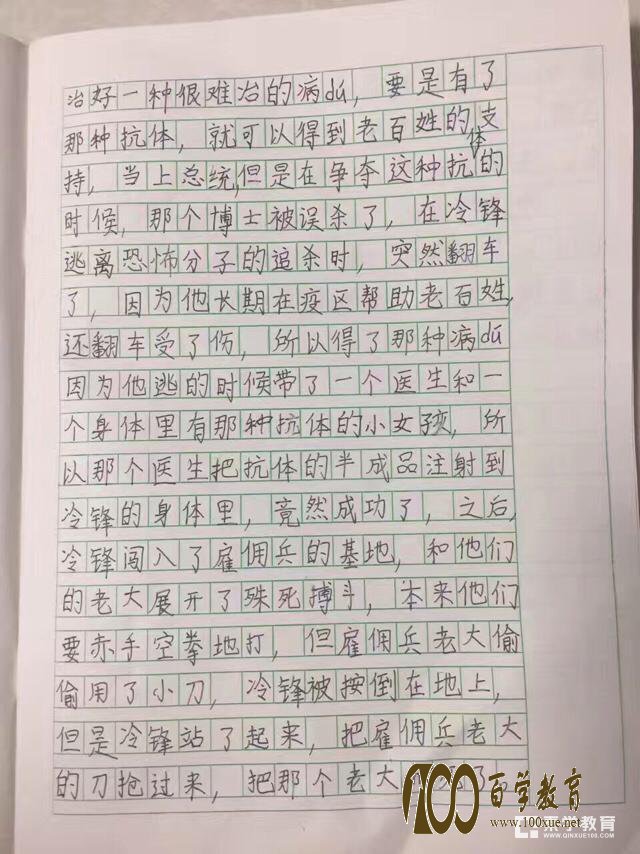 治好一种很难治的病dú，要是有了
那种抗体，就可以得到老百姓的支
持，当上总统,但是在争夺这种抗体的
时候，那个博士被误杀了，在冷锋
逃离恐怖分子的追杀时，突然翻车
了，因为他长期在疫区帮助老百姓,
还翻车受了伤，所以得了那种病dú
因为他逃的时候带了一个医生和一
个身体里有那种抗体的小女孩，所
以那个医生把抗体的半成品注射到
冷锋的身体里，竟然成功了，之后,
冷锋闯入了雇佣兵的基地，和他们
的老大展开了殊死搏斗，本来他们
要赤手空拳地打，但雇佣兵老大偷
偷用了小刀，冷锋被按倒在地上，
但是冷锋站了起来，把雇佣兵老大
的刀抢过来，把那个老大
100百学教育
www.100xue.net
亲学教育
WWW.QINXUE100.COM